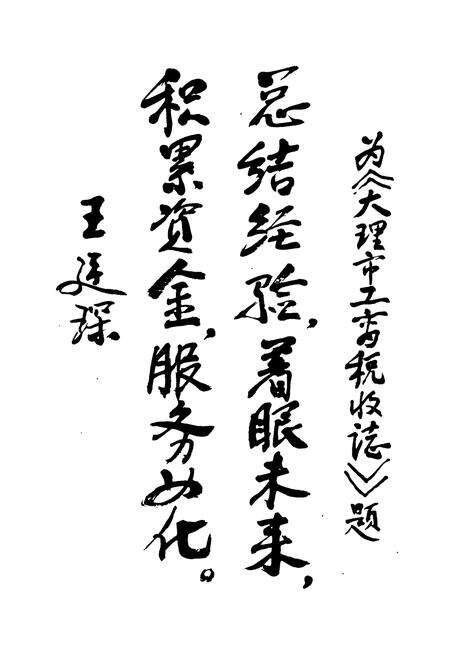 为《大理市工商税收誌》题
总结经验,着眼未来,
积累资金,服务四化。
王廷琛